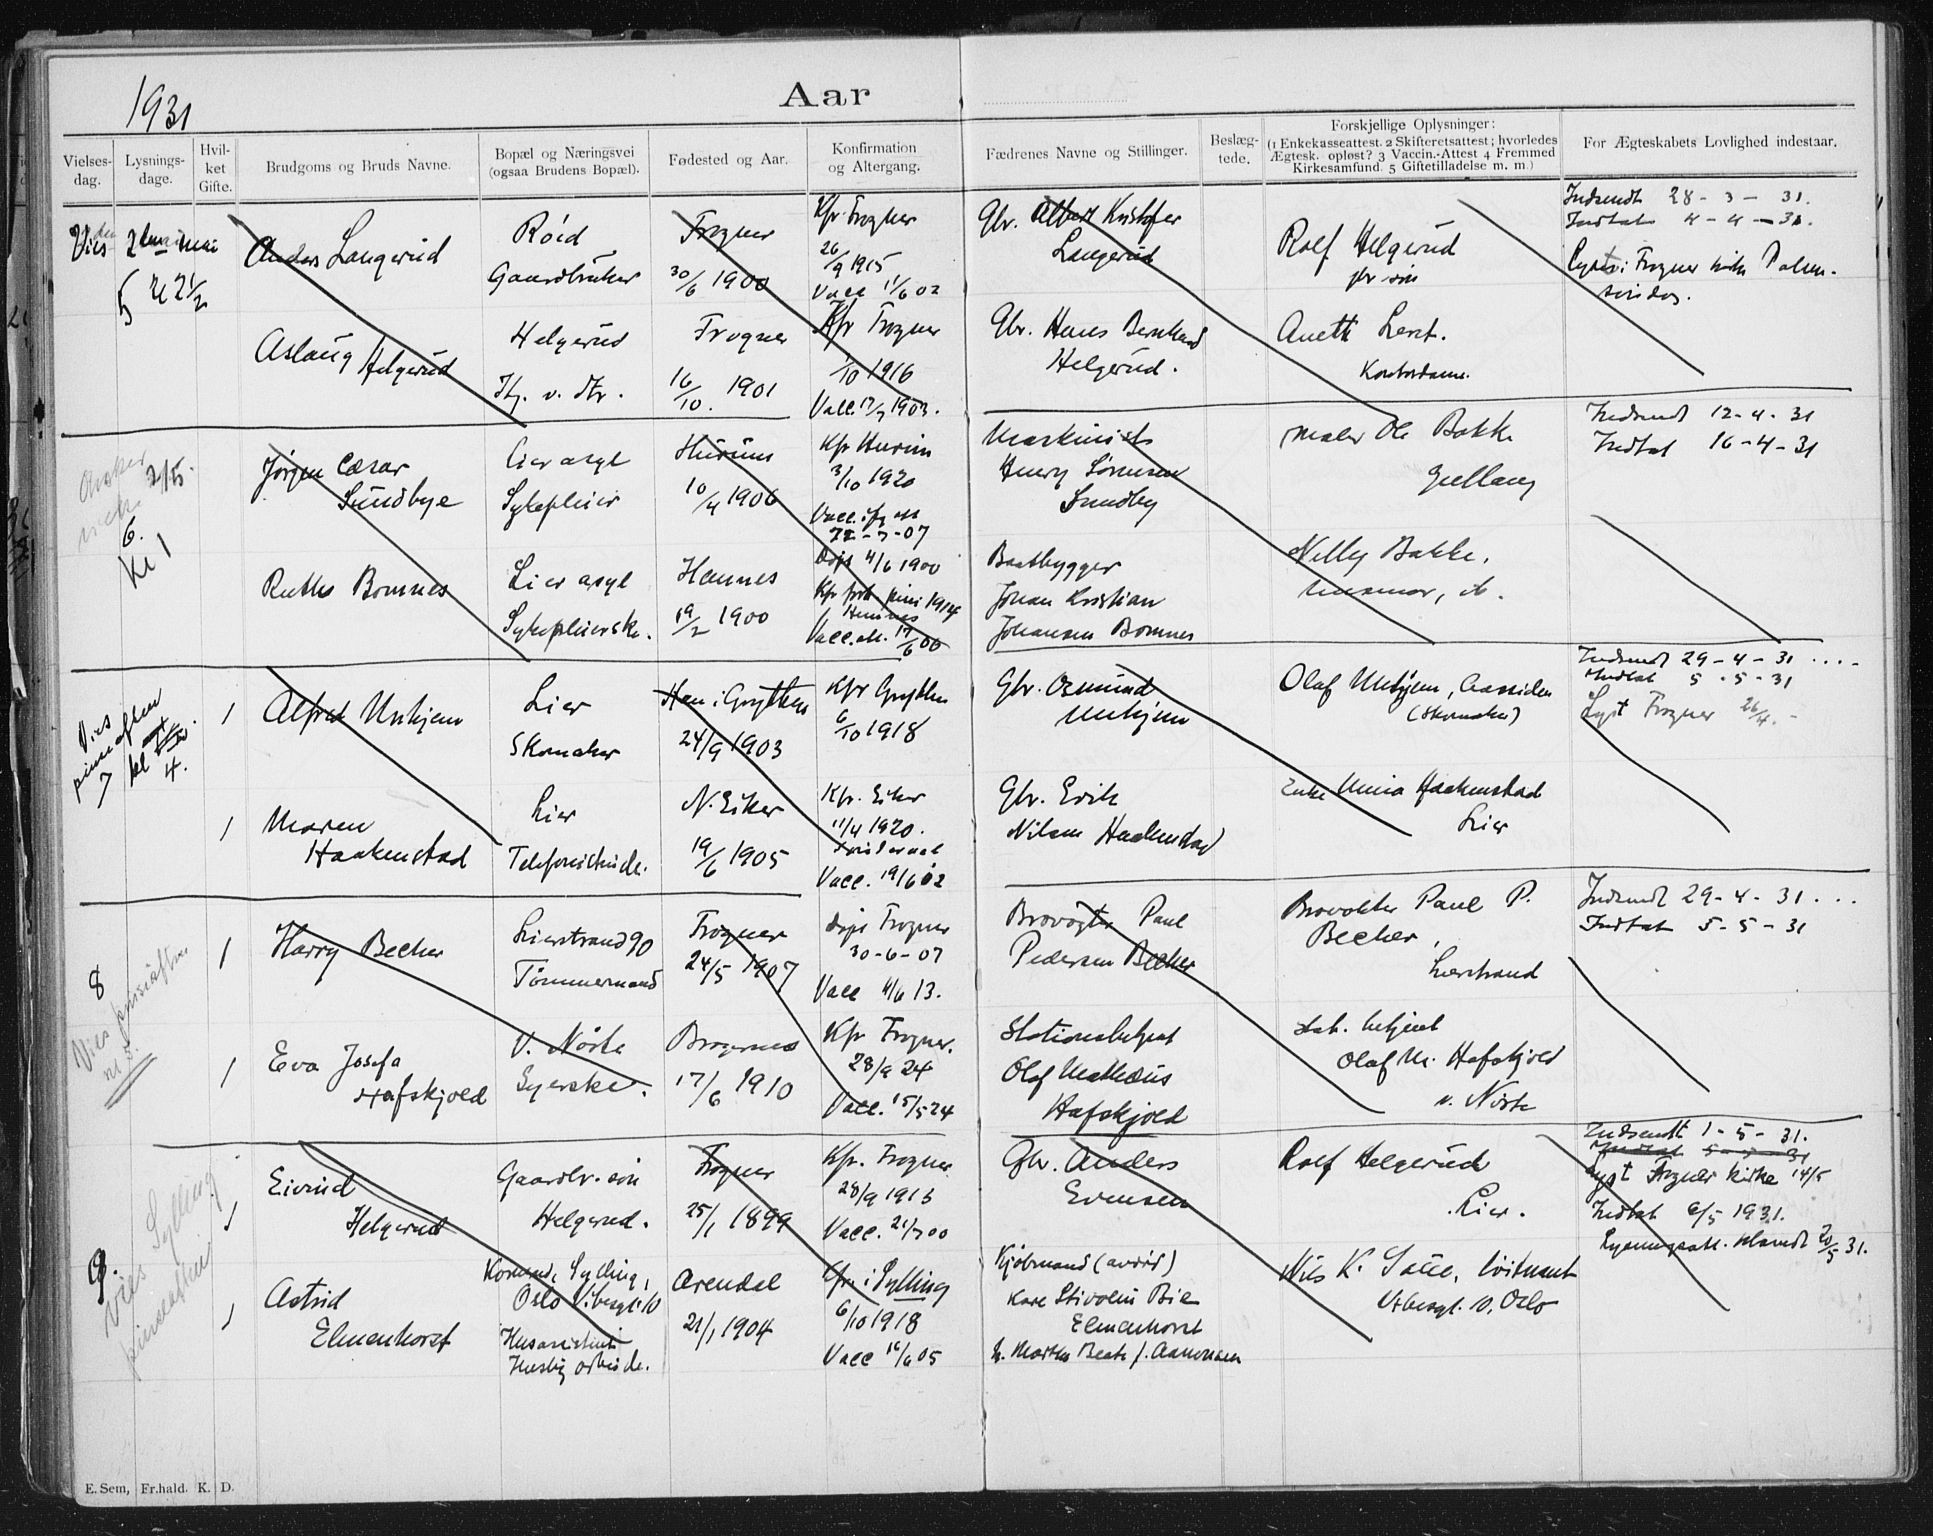 1931
Aar
Vielses-
dag.
Lysnings-
dage.
Hvil-
ket
Gifte.
Brudgoms og Bruds Navne.
Bopæl og Næringsvei
(ogsaa Brudens Bopæl).
Fødested og Aar.
Konfirmation
og Altergang.
Fædrenes Navne og Stillinger.
Beslæg-
tede.
Forskjellige Oplysninger:
(1 Enkekasseattest. 2 Skifteretsattest; hvorledes
Ægtesk. opløst? 3 Vaccin.-Attest 4 Fremmed
Kirkesamfund. 5 Giftetilladelse m. m.)
For Ægteskabets Lovlighed indestaar.
Vies
mai
5
Anders Langerud
Røid
Gaardbruker
Frogner
30/6 1900
Kfr Frogner
26/9 1915
Vacc 11/6 02
Gbr. Albert Kristofer
Langerud
Rolf Helgerud
gbr søn
Indsendt 28-3-31.
Indtat 4-4-31.
Lyst i Frogner
Aslaug
Helgerud
Helgerud
Frogner
16/10. 1901
Kfr Frogner
1/10 1916
Vacc. 17/7 1903.
Gbr. Hans Bernhard
Helgerud.
Anette
2/5.
6.
Kl 1
Jørgen Cæsar
Sundbye
Lier asyl
Sykepleier
Hurum
10/4 1906
Kfr Hurum
3/10 1920
Vacc.
22-7-07
Maskinist
Henry Sørensen
Sundby
Maler Ole Bakke
Indsendt 12-4-31
Indtat 16-4-31
Ruth Bomnes
Lier asyl
Sykepleierske.
Hemnes
19/2 1900
Døpt 4/6 1900
Kfr juni 1914
Hemnes
Vacc. 17/6 00
Baatbygger
Johan Kristian
Johansen Bomnes
Nelly Bakke.
Vies
pinseaften
7
kl
4.
1
Alfred Unhjem
Lier
Skomaker
Hen i Grytten
24/9 1903
Kfr Grytten
6/10 1918
Gbr. Osmund
Unhjem
Olaf Unhjem,
(Skomaker)
Indsendt 29-4-31
Indtat 5-5-31
Lyst Frogner 26/4.
1
Maren
Haakenstad
Lier
Telefonistinde.
N. Eiker
19/6 1905
Kfr. Eiker
11/4 1920.
Vacc. 19/6
Gbr. Erik
Nilsen Haakenstad
Enke Haakenstad
Lier
8
Vies pinseaften
kl 5.
1
Harry Becher
Lierstrand 90
Tømmermand
Frogner
24/5 1907
Døpt Frogner
30-6-07
Vacc 4/6 13.
Brovogter Paul
Pedersen Becher
Brovokter Paul P.
Becher,
Lierstrand
Indsendt 29-4-31
Indtat 5-5-31
1
Eva Josefa
Hafskjold
V. Nøste
Syerske.
Bragernes
17/6 1910
Kfr Frogner.
28/9 24
Vacc. 15/5 24
Stationsbetjent
Olaf Matheus
Hafskjold
stat. betjent
Olaf M. Hafskjold
v. Nøste
9.
Vies Sylling
pinseaften
1
Eivind
Helgerud
Gaardbr. søn
Helgerud.
Frogner
25/1 1899
Kfr. Frogner
28/9 1913
Vacc. 21/7 00
Gbr. Anders
Evensen
Rolf Helgerud
Lier.
Indsendt 1-5-31.
Indtat 5-5-31
Lyst Frogner kirke 14/5
Indtat 6/5 1931.
1
Astrid
Elmenhorst
Sylling,
Oslo Vibesgt. 10
Arendal
21/1 1904
Kfr i Sylling
6/10 1918
Vacc 16/6 05
Kjøbmand (avdød)
Elmenhorst
Aanonsen
Nils K.
Vibesgt. 10, Oslo
E. Sem, Fr.hald. K. D.